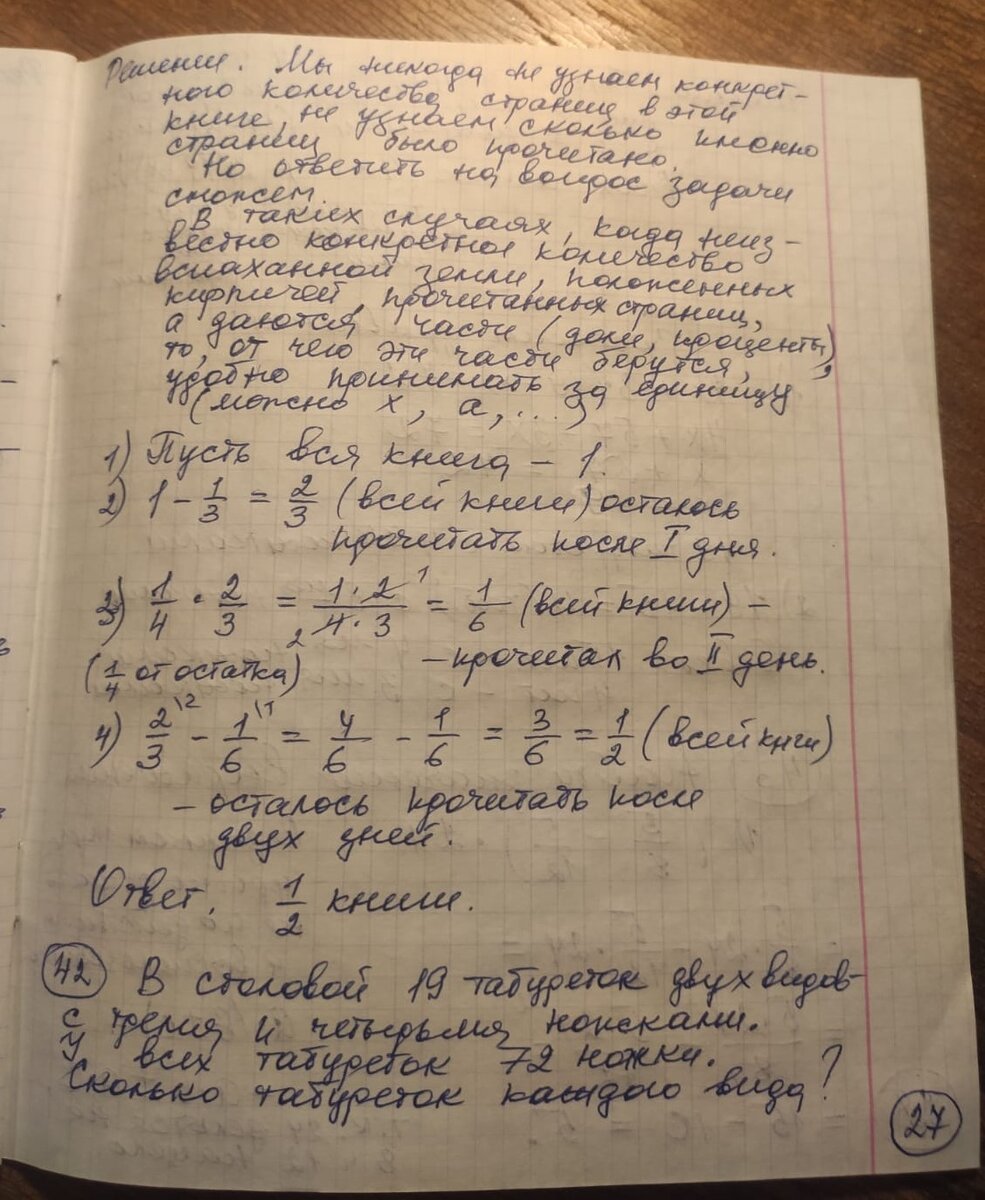 Решение. Мы никогда не узнаем конкрет-
ного количества страниц в этой
книге, не узнаем сколько именно
страниц было прочитано.
Но ответить на вопрос задачи
сможем.
В таких случаях, когда неиз-
вестно конкретное количество
вспаханной земли, положенных
кирпичей, прочитанных страниц,
а даются части (доли, проценты),
то, от чего эти части берутся,
удобно принимать за единицу
(можно x, a, ...)
1) Пусть вся книга – 1.
2) 1 - 1/3 = 2/3 (всей книги) осталось
прочитать после I дня.
3) 1/4 · 2/3 = 1·2/4·3 = 1/6 (всей книги) –
(1/4 от остатка) – прочитал во II день.
4) 2/3 \2 - 1/6 \1 = 4/6 - 1/6 = 3/6 = 1/2 (всей книги)
– осталось прочитать после
двух дней.
Ответ. 1/2 книги.
42 В столовой 19 табуреток двух видов-
с тремя и четырьмя ножками.
У всех табуреток 72 ножки.
Сколько табуреток каждого вида?
27